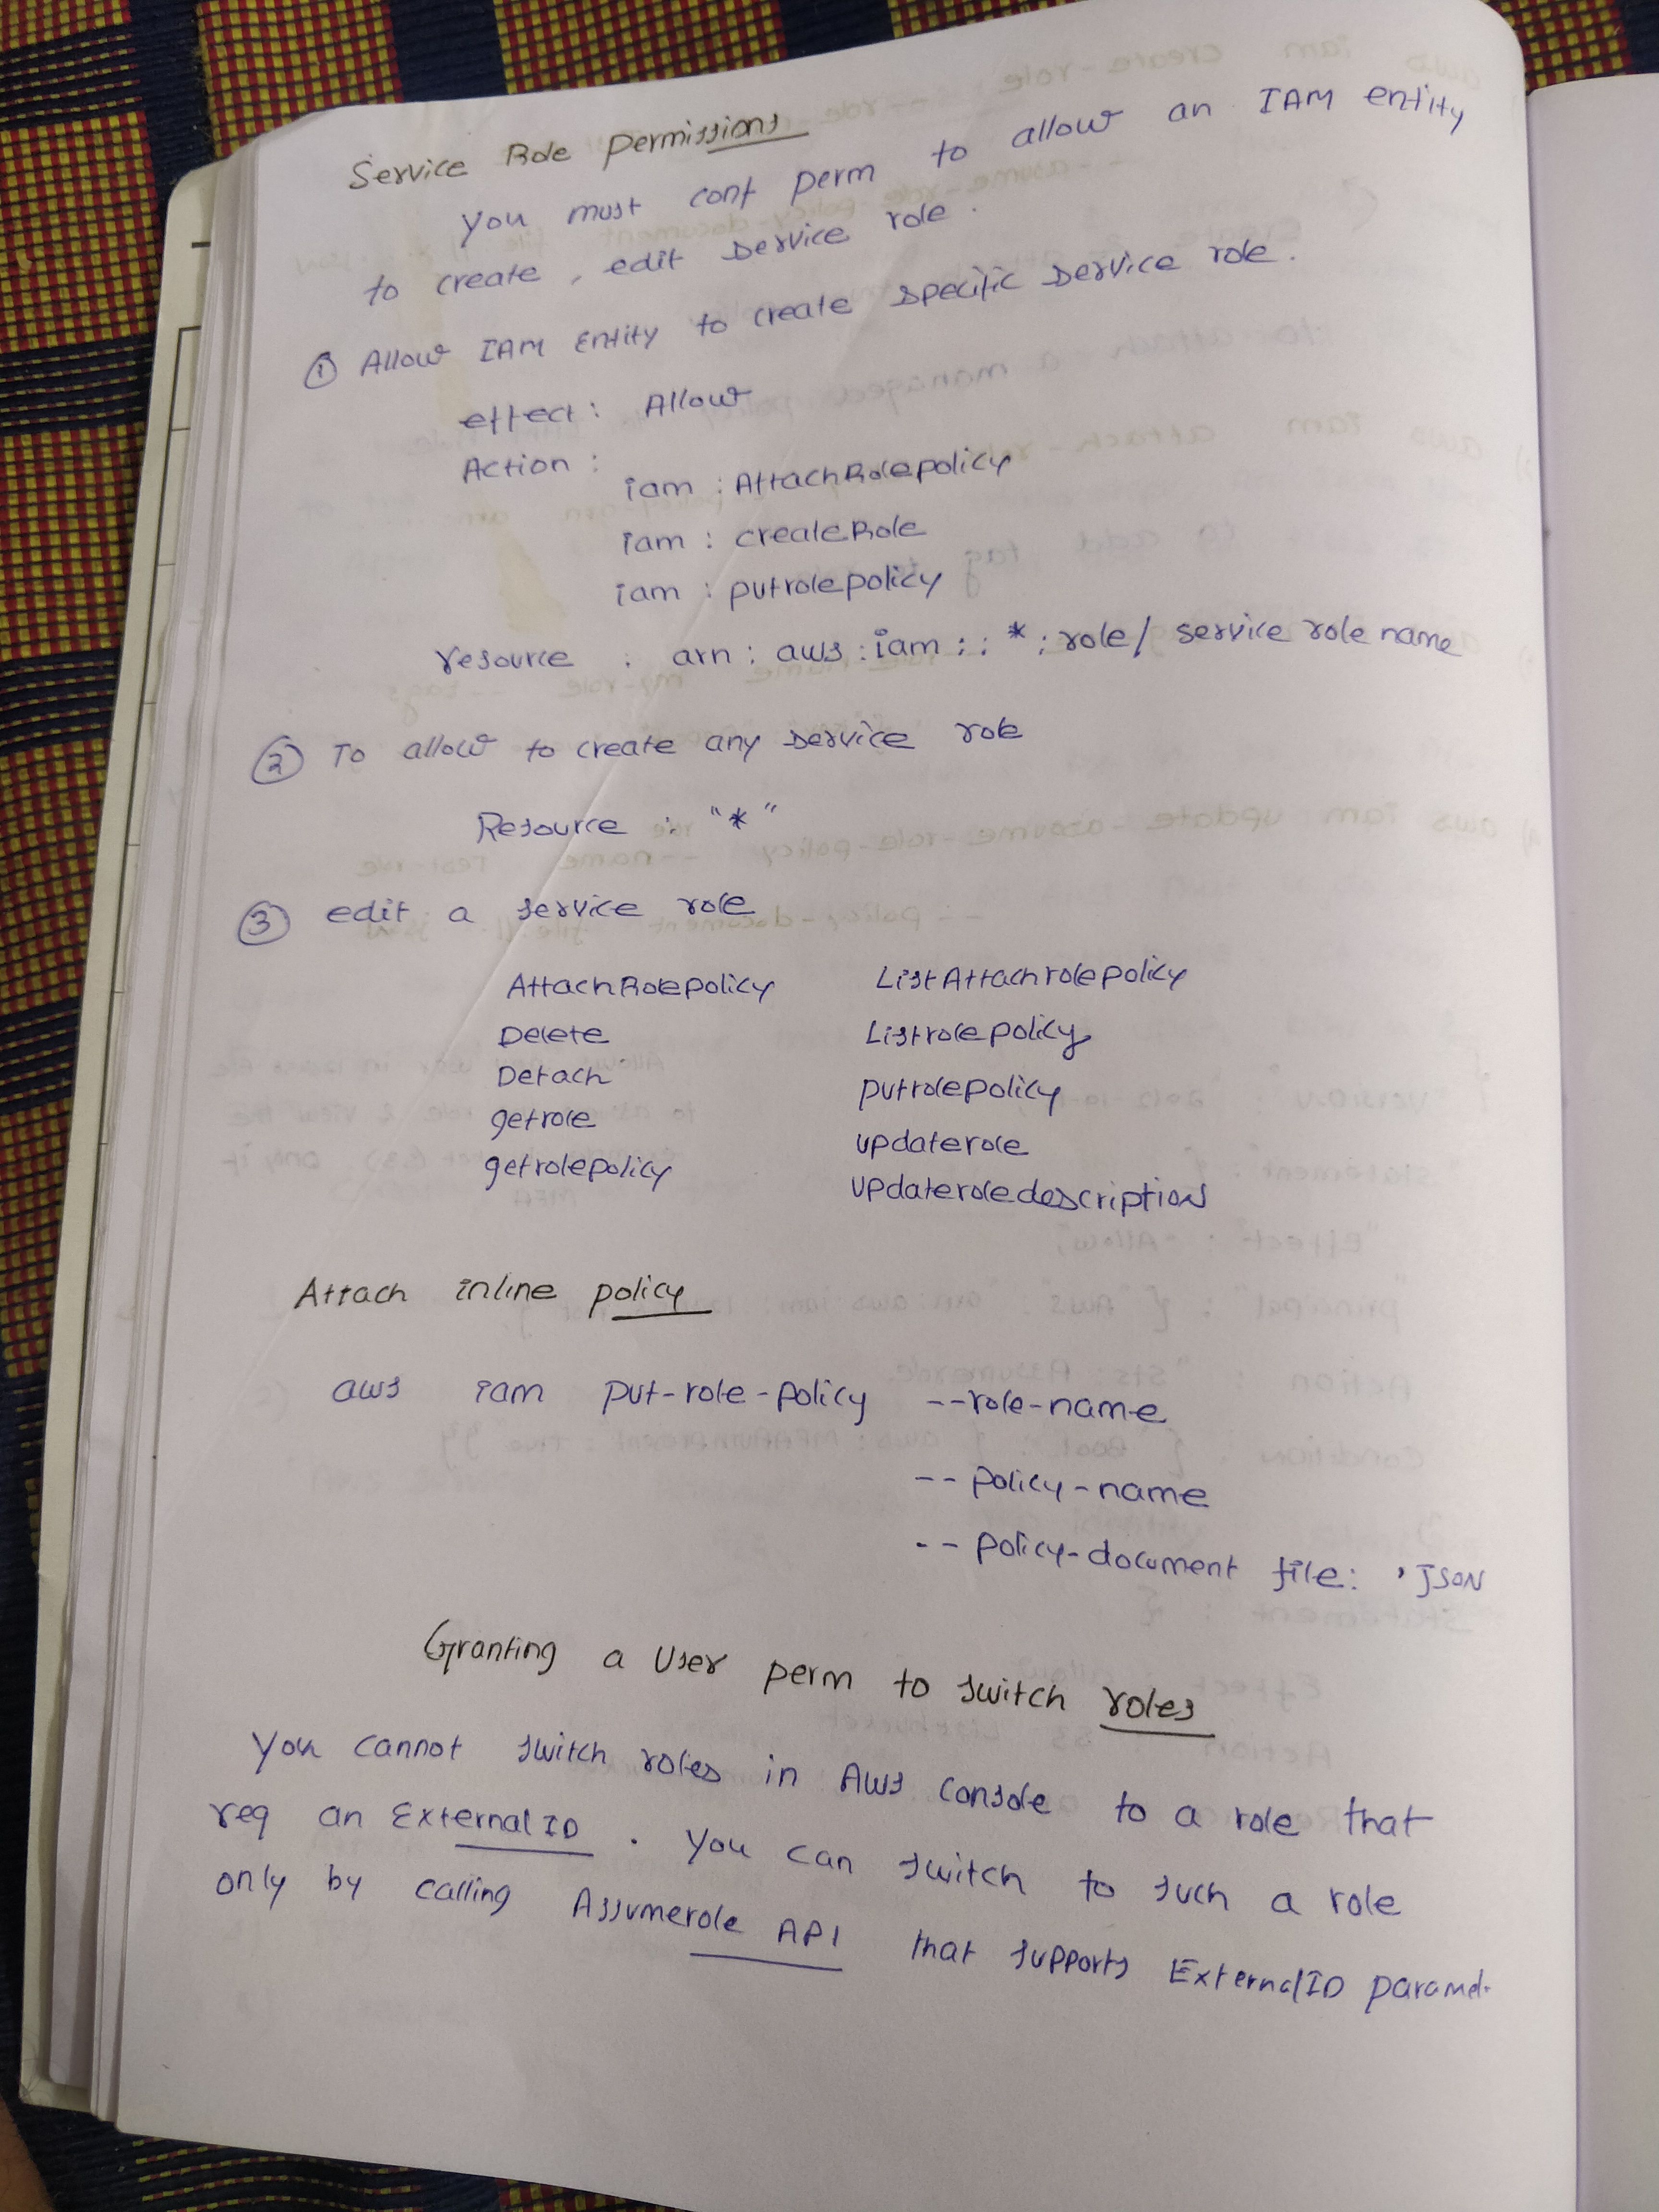 Service Role permissions
you must conf perm to allow an IAM entity
to create, edit service role.
① Allow IAM Entity to create specific service role.
effect: Allow
Action:
iam : AttachRolepolicy
iam : createRole
iam : putrolepolicy
resource : arn : aws : iam : : * : role/ service role name
② To allow to create any service role
Resource : "*"
③ edit a service role
AttachRolepolicy ListAttachrolepolicy
Delete Listrolepolicy
Detach putrolepolicy
getrole updaterole
getrolepolicy updateroledescription
Attach inline policy
aws iam put-role-policy --role-name
-- policy-name
-- policy-document file: 'JSON
Granting a User perm to switch roles
You cannot switch roles in AWS console to a role that
req an External ID . You can switch to such a role
only by calling Assumerole API that supports ExternalID paramet.